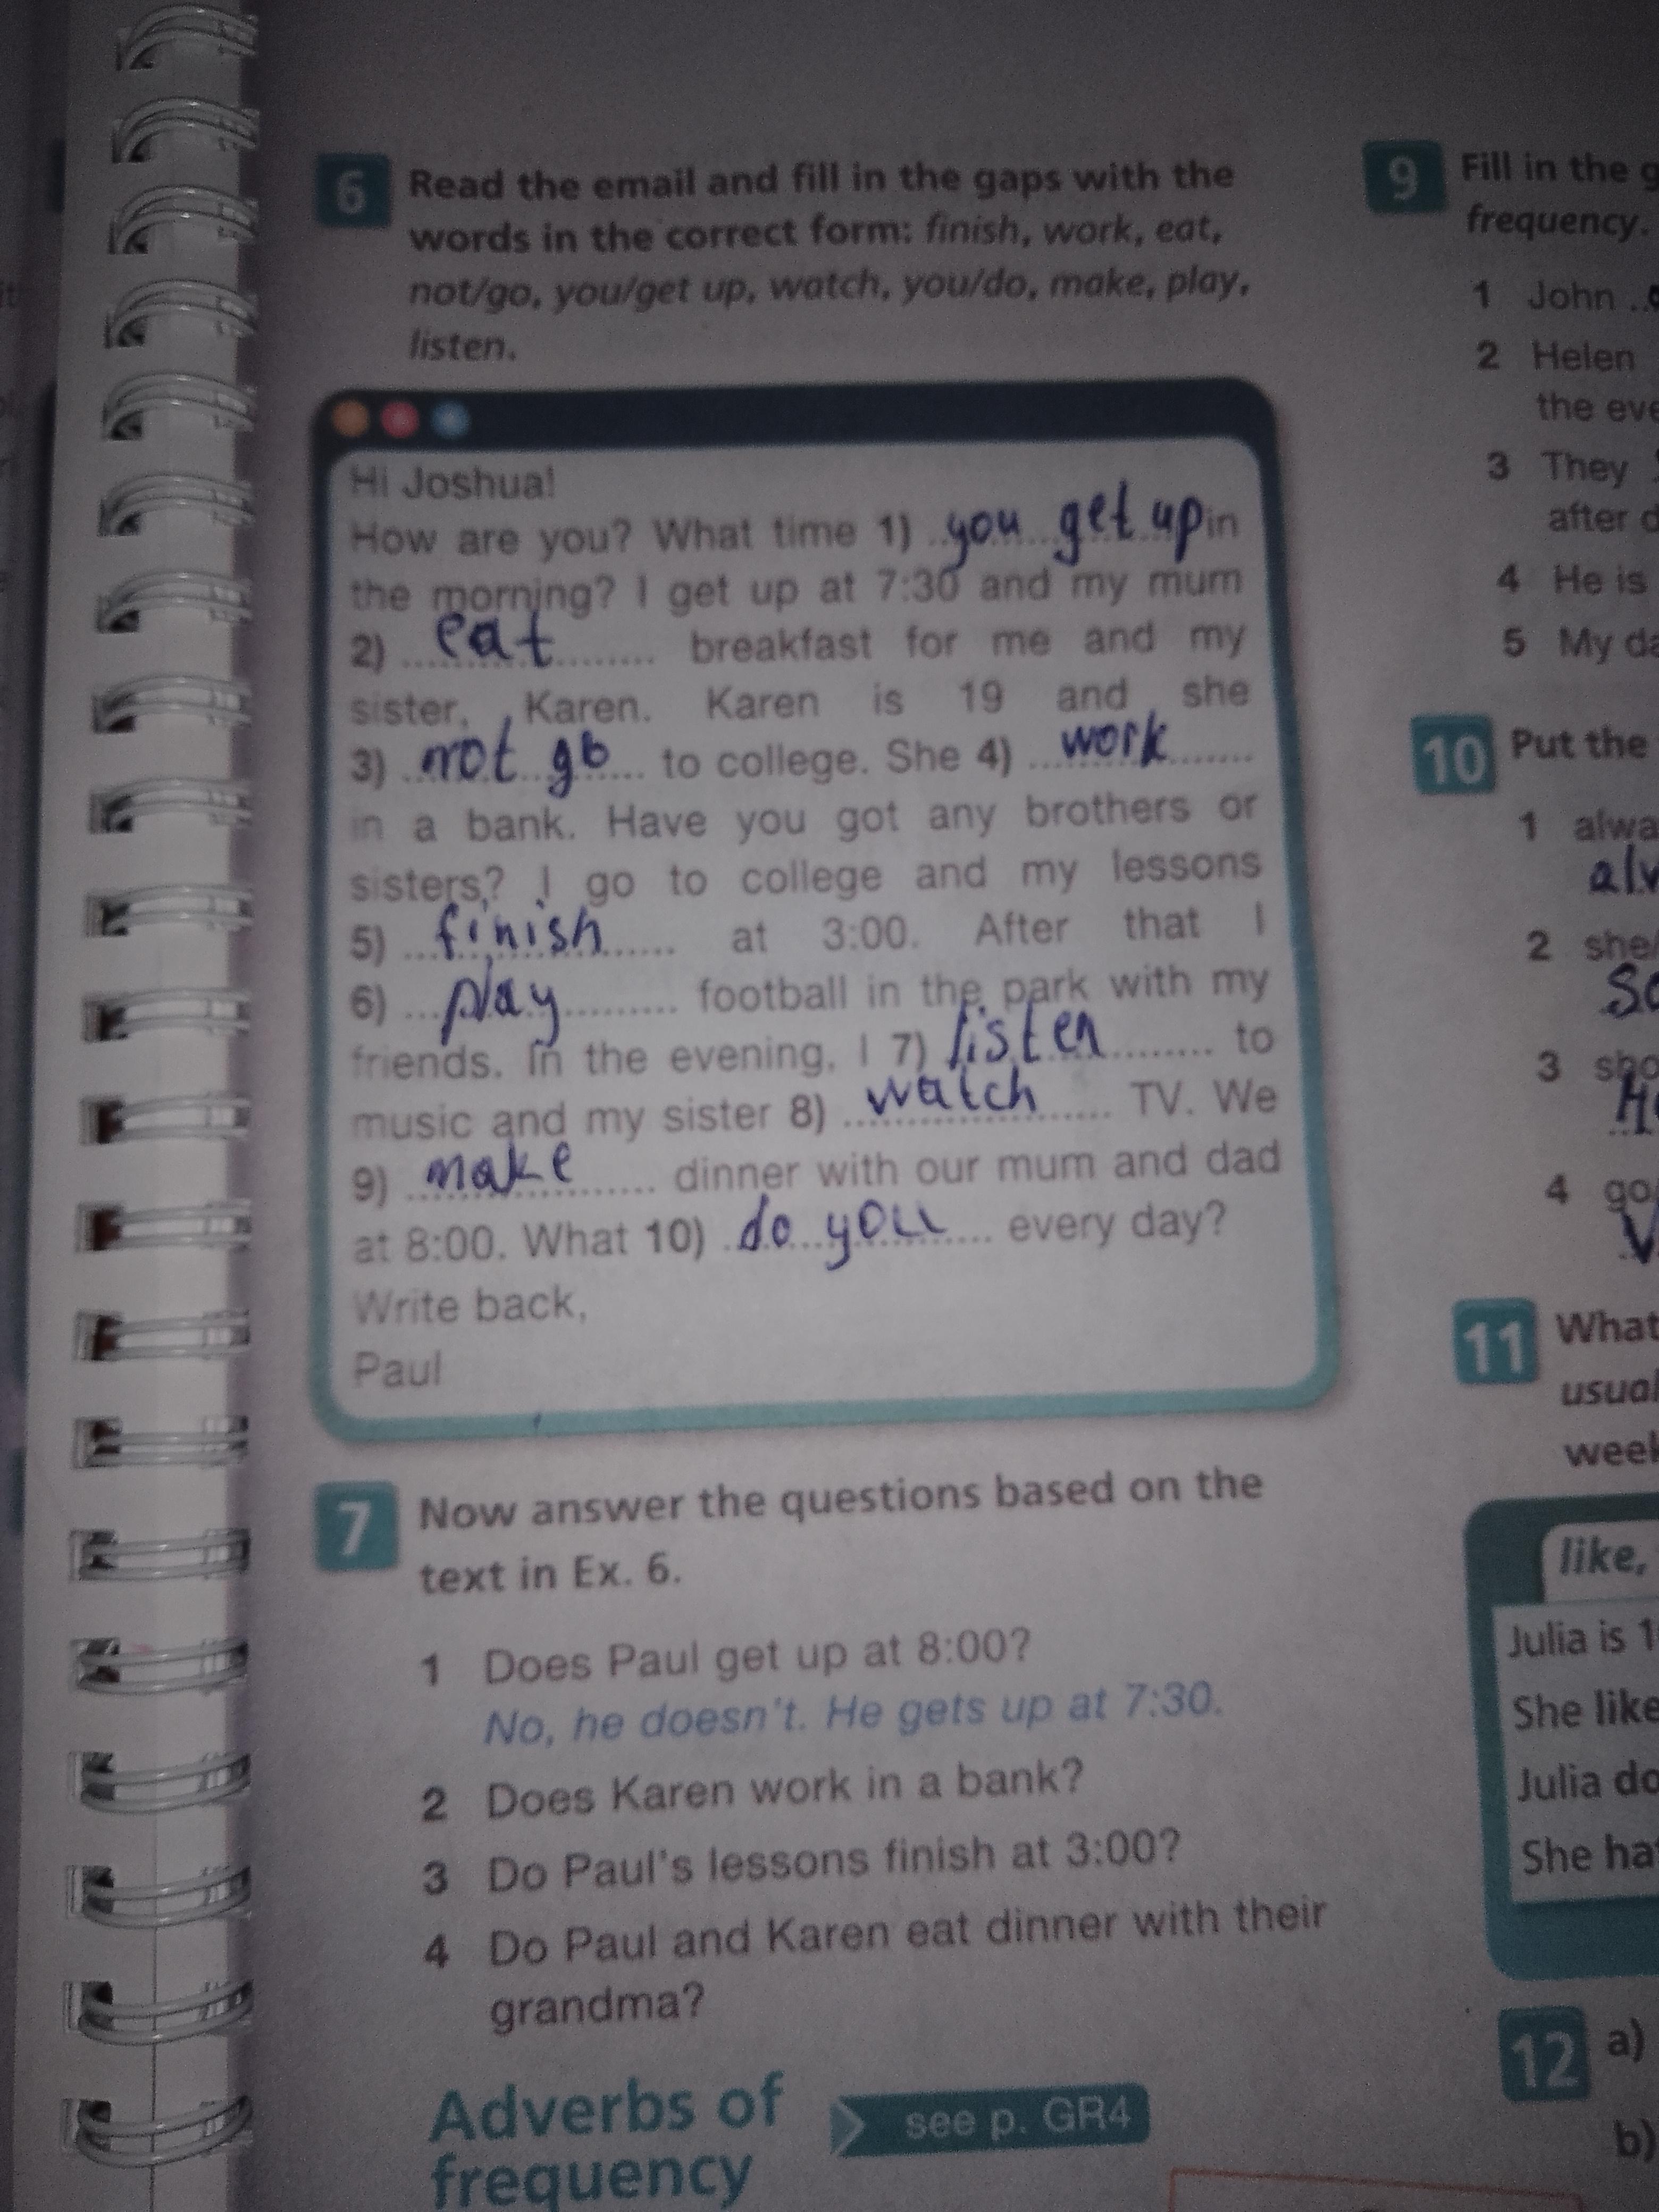 6 Read the email and fill in the gaps with the
words in the correct form: finish, work, eat,
not/go, you/get up, watch, you/do, make, play,
listen.
Hi Joshua!
How are you? What time 1) you get up in
the morning? I get up at 7:30 and my mum
2) eat breakfast for me and my
sister, Karen. Karen is 19 and she
3) not go to college. She 4) work
in a bank. Have you got any brothers or
sisters? I go to college and my lessons
5) finish at 3:00. After that I
6) play football in the park with my
friends. In the evening, I 7) listen to
music and my sister 8) watch TV. We
9) make dinner with our mum and dad
at 8:00. What 10) do you every day?
Write back,
Paul
7 Now answer the questions based on the
text in Ex. 6.
1 Does Paul get up at 8:00?
No, he doesn't. He gets up at 7:30.
2 Does Karen work in a bank?
3 Do Paul's lessons finish at 3:00?
4 Do Paul and Karen eat dinner with their
grandma?
Adverbs of
frequency
see p. GR4
9 Fill in the
frequency.
1 John
2 Helen
the
3 They
after
4 He is
5 My
10 Put the
1
2 she/
3
4 go
11 What
12 a)
b)
like,
Julia is
She like
Julia
She